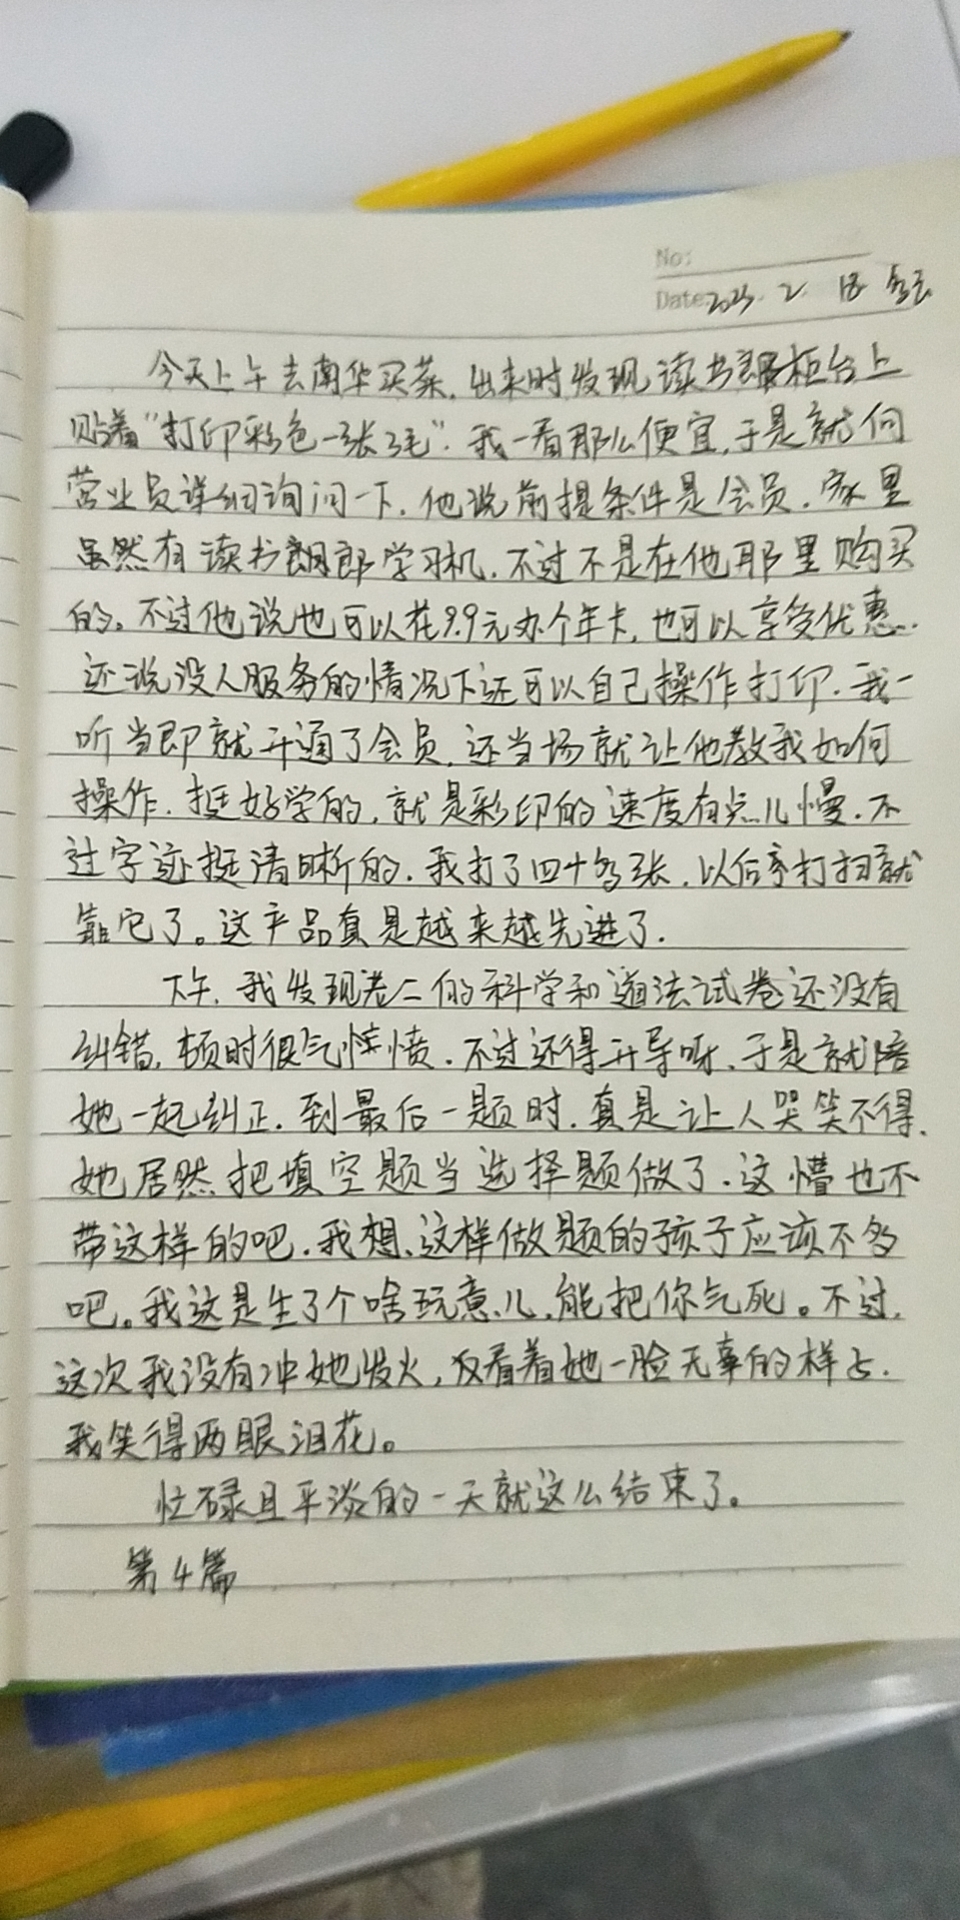 No:
Date: 2025. 2. 18 多云
今天上午去南华买菜,出来时发现读书郎柜台上
贴着"打印彩色一张2毛".我一看那么便宜,于是就向
营业员详细询问一下.他说前提条件是会员.家里
虽然有读书郎学习机.不过不是在他那里购买
的。不过他说也可以花9.9元办个年卡,也可以享受优惠.
还说没人服务的情况下还可以自己操作打印.我一
听当即就开通了会员.还当场就让他教我如何
操作.挺好学的,就是彩印的速度有点儿慢.不
过字迹挺清晰的.我打了四十多张.以后打扫就
靠它了。这产品真是越来越先进了.
下午.我发现老二的科学和道法试卷还没有
纠错,顿时很气愤.不过还得开导呀、于是就陪
她一起纠正.到最后一题时.真是让人哭笑不得.
她居然把填空题当选择题做了.这懵也不
带这样的吧.我想、这样做题的孩子应该不多
吧。我这是生了个啥玩意儿.能把你气死。不过,
这次我没有冲她发火,反看着她一脸无辜的样子.
我笑得两眼泪花。
忙碌且平淡的一天就这么结束了。
第4篇